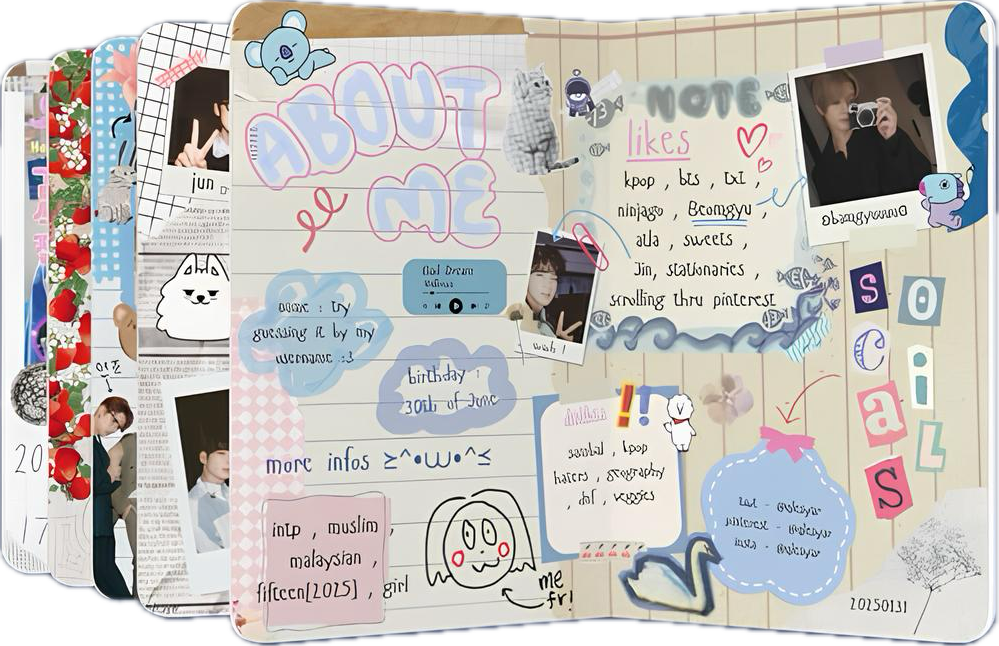 jun
ABOUT
ME
name : try
guessing it by my
username :3
birthday :
30th of June
more infos ≥^•ω•^≤
intp , muslim ,
malaysian ,
fifteen[2025] , girl
me
fr!
NOTE
likes
kpop , bts , txt ,
ninjago , Beomgyu ,
atla , sweets ,
Jin, stationaries ,
scrolling thru pinterest
13
wish !
dislikes
sambal , kpop
haters , geography
, dbf , veggies
SOCiALS
pinterest -
insta -
20250131
20
17